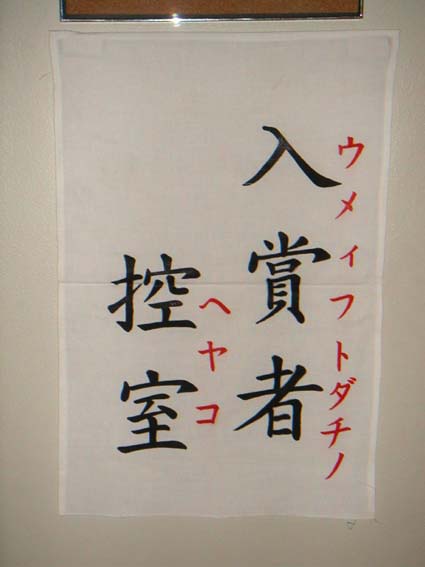 ウメイフトダチノ
入賞者
ヘヤコ
控室